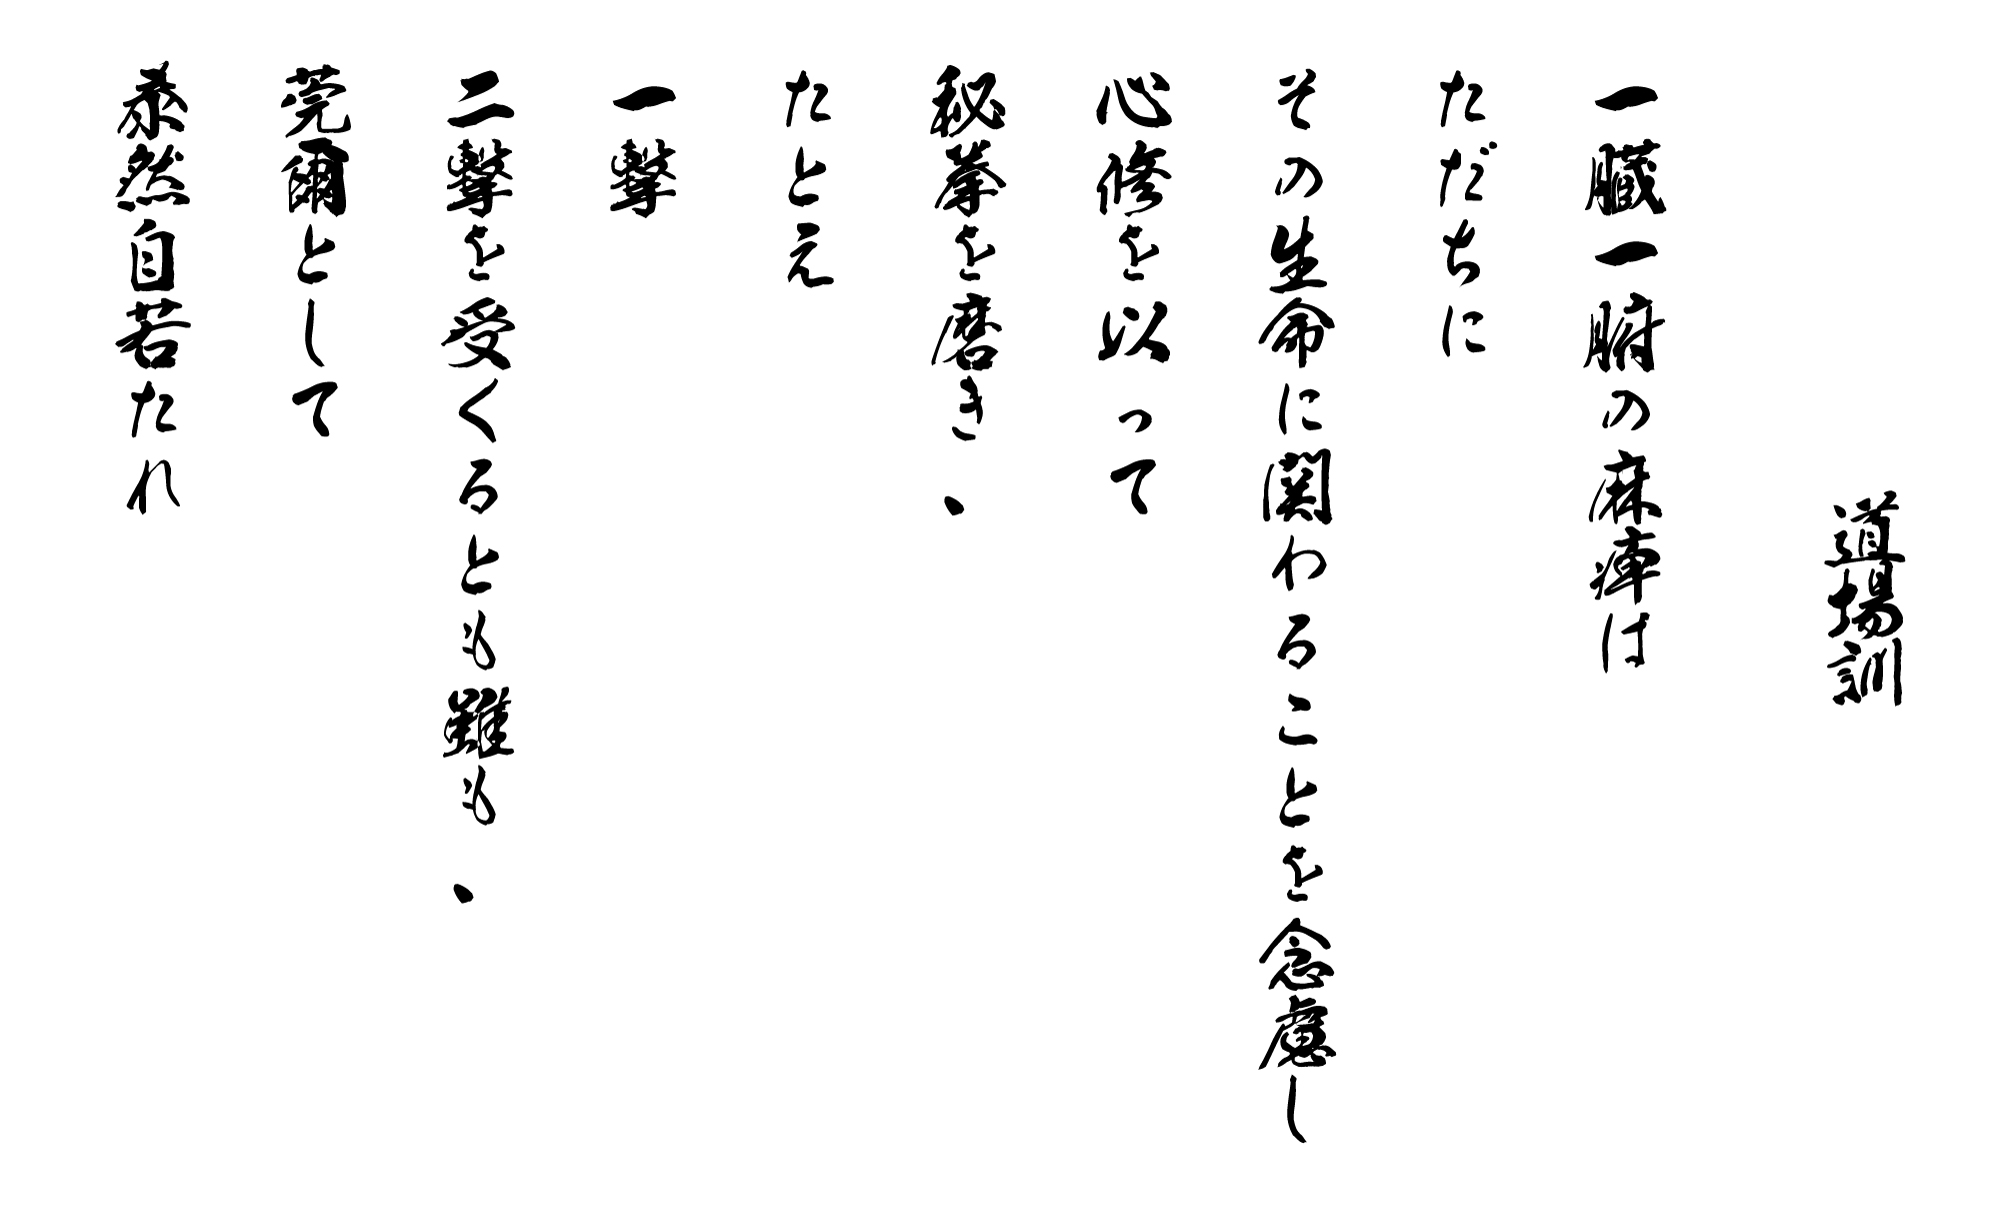 道場訓
一臓一腑の麻痺は
ただちに
その生命に関わることを念慮し
心修を以って
秘拳を磨き、
たとえ
一撃
二撃を受くるとも雖も、
莞爾として
泰然自若たれ